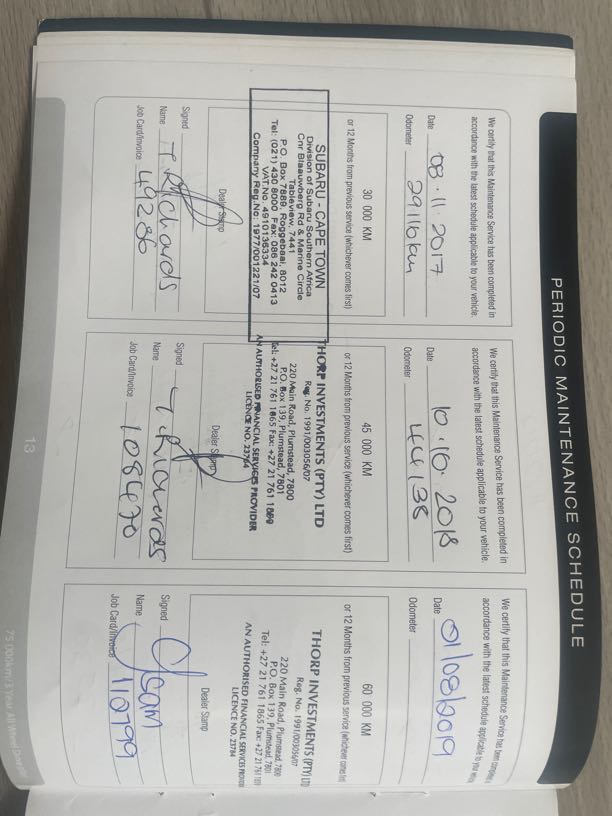 PERIODIC MAINTENANCE SCHEDULE
We certify that this Maintenance Service has been completed in
accordance with the latest schedule applicable to your vehicle.
Date 08.11.2017
Odometer 29116km
30 000 KM
or 12 Months from previous service (whichever comes first)
SUBARU - CAPE TOWN
Division of Subaru Southern Africa
Cnr Blaauwberg Rd & Marine Circle
Tableview, 7441
P.O. Box 7889, Roggebaai, 8012
Tel: (021) 430 8000 Fax: 086 242 0413
VAT.No. 4910136334
Company Reg.No: 1977/001221/07
Dealer Stamp
Signed
Name T Richards
Job Card/Invoice 49286
We certify that this Maintenance Service has been completed in
accordance with the latest schedule applicable to your vehicle.
Date 10.10.2018
Odometer 44138
45 000 KM
or 12 Months from previous service (whichever comes first)
THORP INVESTMENTS (PTY) LTD
Reg. No. 1991/003056/07
220 Main Road, Plumstead, 7800
P.O. Box 139, Plumstead, 7801
Tel: +27 21 761 1865 Fax: +27 21 761 1899
AN AUTHORISED FINANCIAL SERVICES PROVIDER
LICENCE NO. 23784
Dealer Stamp
Signed
Name T Richards
Job Card/Invoice 108470
We certify that this Maintenance Service has been complete
accordance with the latest schedule applicable to your vehic
Date 01/08/2019
Odometer
60 000 KM
or 12 Months from previous service (whichever comes first)
THORP INVESTMENTS (PTY) LTD
Reg. No. 1991/003056/07
220 Main Road, Plumstead, 7800
P.O. Box 139, Plumstead, 7801
Tel: +27 21 761 1865 Fax: +27 21 761
AN AUTHORISED FINANCIAL SERVICES PROVIDER
LICENCE NO. 23784
Dealer Stamp
Signed
Name
Job Card/Invoice 110799
13
75 000km/3 Year All Wheel